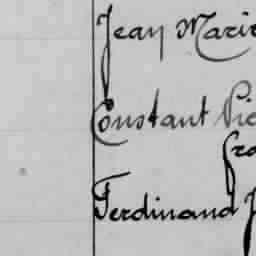 Jean Marie
Constant Pie
fra
Ferdinand J